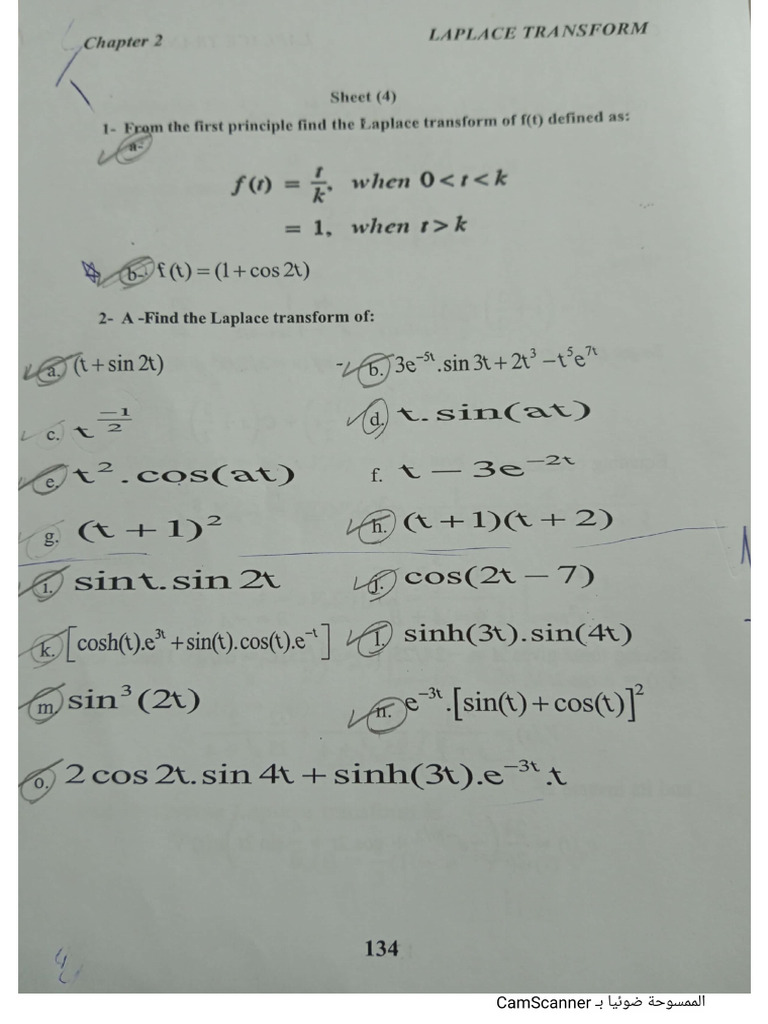 Chapter 2
LAPLACE TRANSFORM
Sheet (4)
1- From the first principle find the Laplace transform of f(t) defined as:
a-
f(t) = t/k, when 0 < t < k
= 1, when t > k
b- f(t) = (1 + cos 2t)
2- A -Find the Laplace transform of:
a. (t + sin 2t)
b. 3e^{-5t}.sin 3t + 2t^3 – t^5e^{7t}
c. t^{-1/2}
d. t. sin(at)
e. t^2. cos(at)
f. t – 3e^{-2t}
g. (t + 1)^2
h. (t + 1)(t + 2)
i. sin t. sin 2t
j. cos(2t – 7)
k. [cosh(t).e^{3t} + sin(t).cos(t).e^{-t}]
l. sinh(3t). sin(4t)
m. sin^3(2t)
n. e^{-3t}.[sin(t) + cos(t)]^2
o. 2 cos 2t. sin 4t + sinh(3t).e^{-3t}.t
134
الممسوحة ضوئيا بـ CamScanner